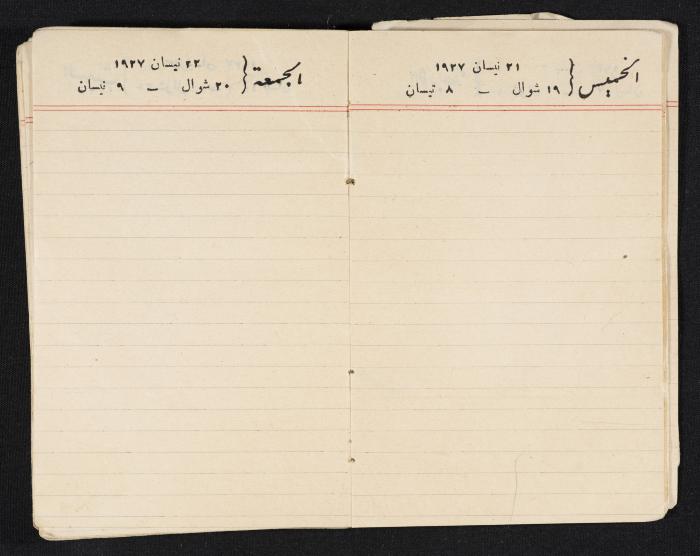 الخميس { ٢١ نيسان ١٩٢٧
١٩ شوال – ٨ نيسان
الجمعة { ٢٢ نيسان ١٩٢٧
٢٠ شوال – ٩ نيسان